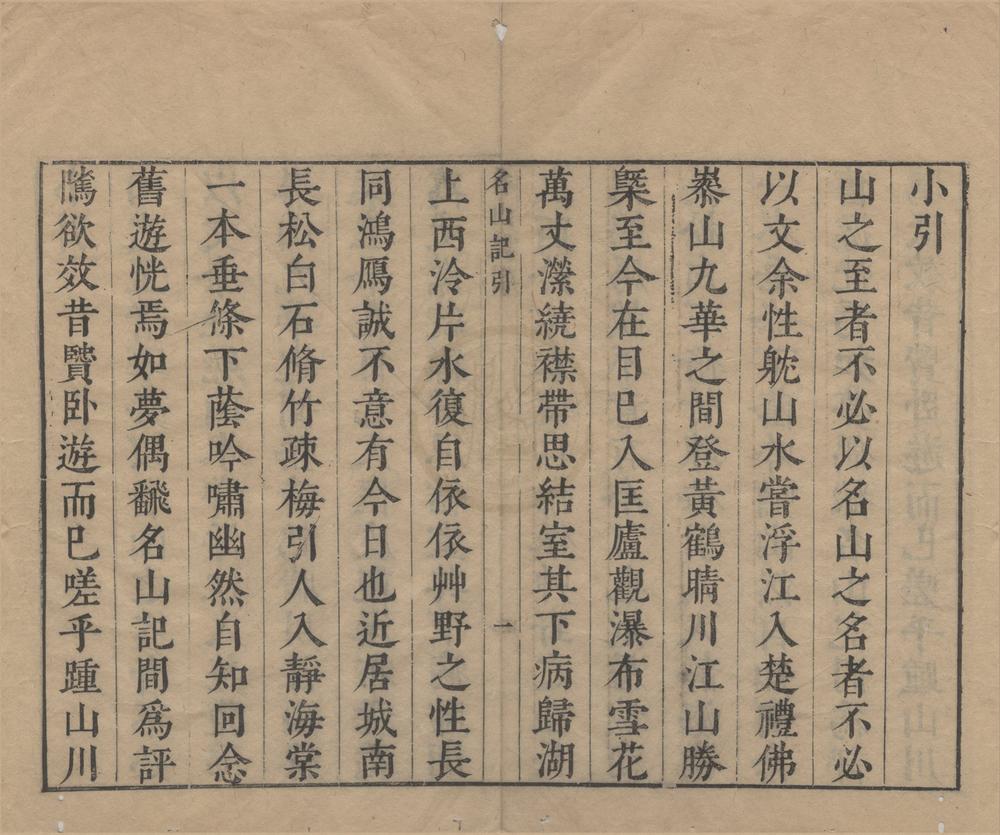 小引
山之至者不必以名山之名者不必
以文余性躭山水嘗浮江入楚禮佛
崇山九華之間登黃鶴晴川江山勝
槩至今在目巳入匡廬觀瀑布雪花
萬丈瀠繞襟帶思結室其下病歸湖
名山記引
一
上西泠片水復自依依艸野之性長
同鴻鴈誠不意有今日也近居城南
長松白石脩竹疎梅引人入靜海棠
一本垂條下蔭吟嘯幽然自知回念
舊遊恍焉如夢偶飜名山記間爲評
隲欲效昔賢卧遊而巳嗟乎踵山川